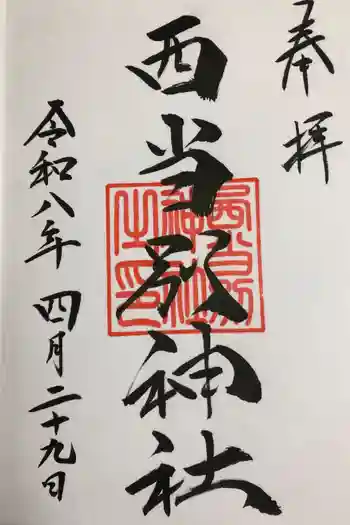 奉拝
西当別神社
令和八年 四月二十九日